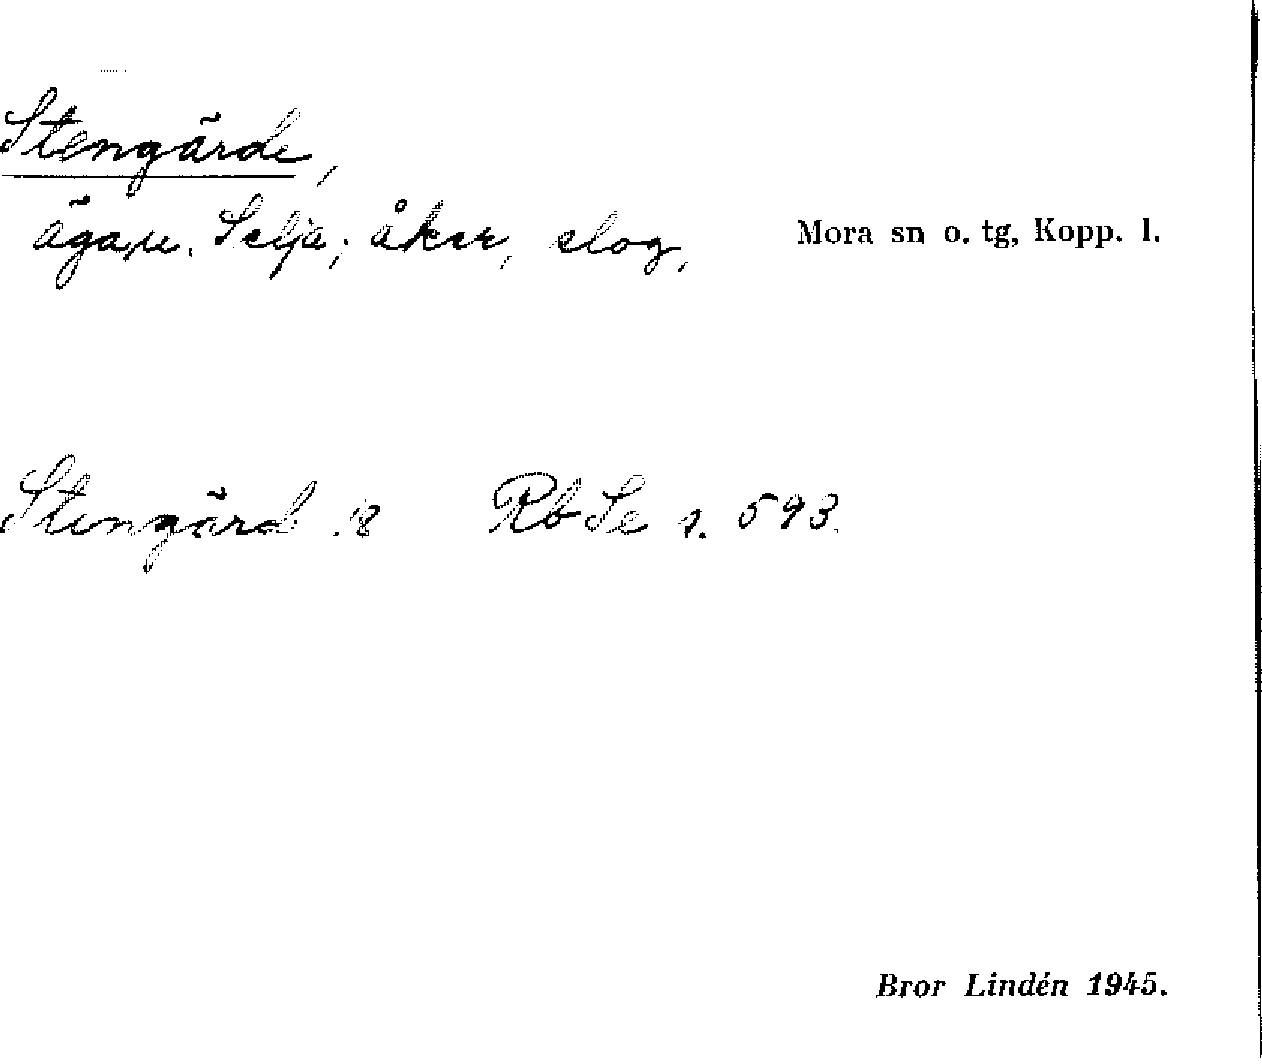 Stengärde,
ägare. Selja; åker, slog,
Mora sn o. tg, Kopp. l.
Stengärd 18 Rb Se s. 593.
Bror Lindén 1945.